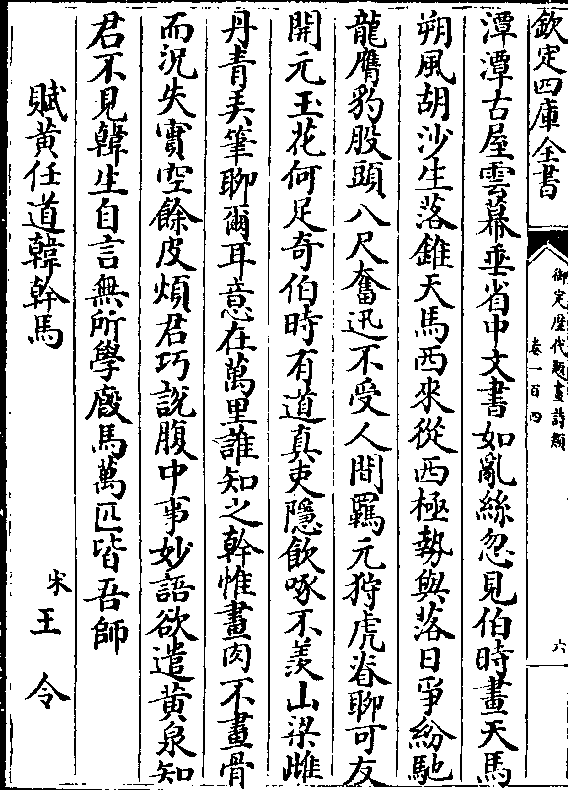 欽定四庫全書
御定歴代題畫詩類
卷一百四
六
潭潭古屋雲幕垂省中文書如亂絲忽見伯時畫天馬
朔風胡沙生落錐天馬西來從西極勢與落日爭紛馳
龍膺豹股頭八尺奮迅不受人間羈元狩虎脊聊可友
開元玉花何足奇伯時有道真吏隱飲啄不羨山梁雌
丹青弄筆聊爾耳意在萬里誰知之幹惟畫肉不畫骨
而況失實空餘皮煩君巧說腹中事妙語欲遣黄泉知
君不見韓生自言無所學廐馬萬匹皆吾師
賦黄任道韓幹馬
宋王令